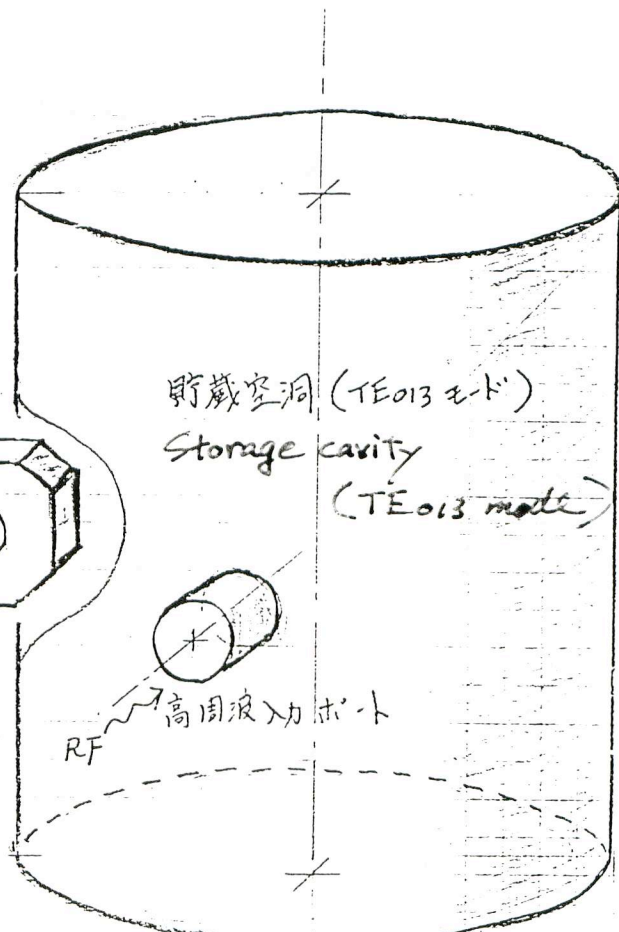 貯蔵空洞 (TE013 モード)
Storage cavity
(TE013 mode)
高周波入力ポート
RF